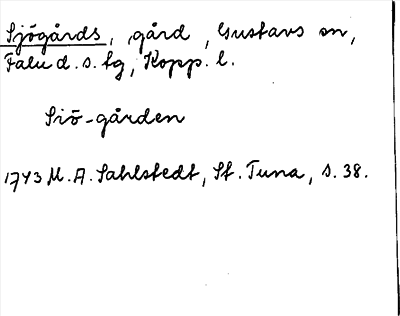 Sjögårds, gård, Gustavs sn,
Falu d. s. tg, Kopp. l.
Siö-gården
1743 M. A. Sahlstedt, St. Tuna, s. 38.